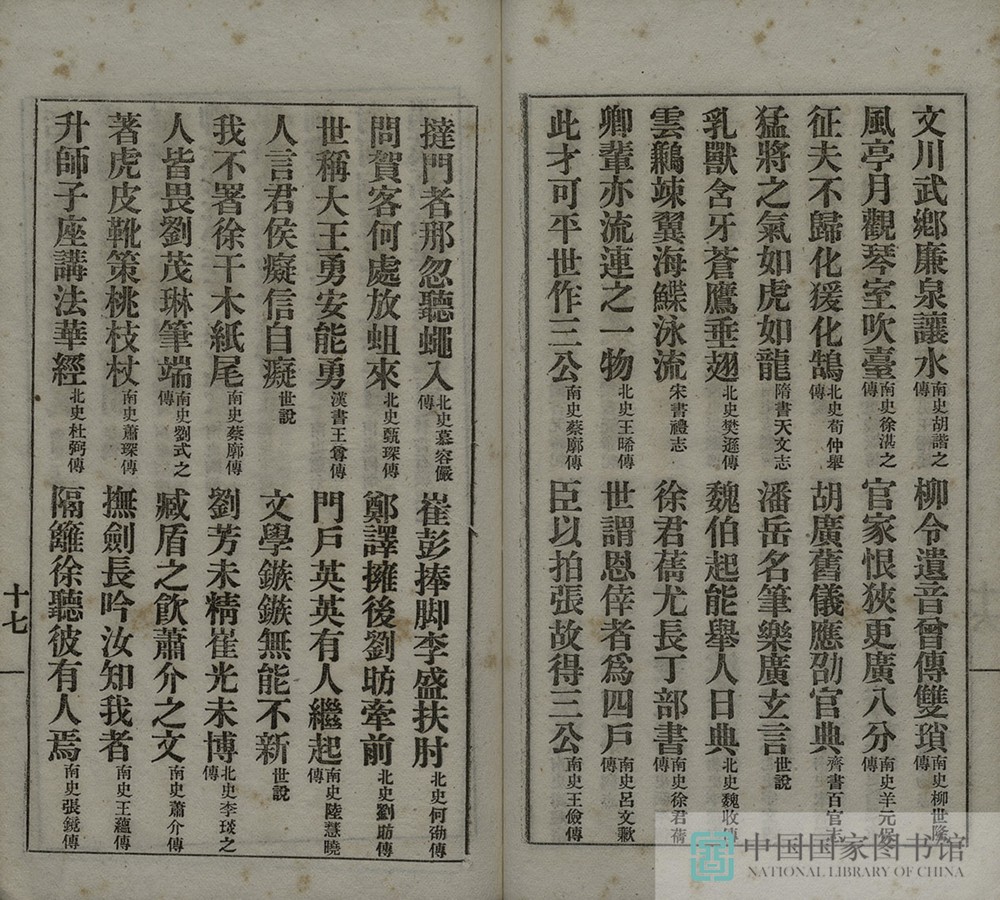 文川武鄕廉泉讓水南史胡諧之傳 柳令遺音曾傳雙瑣南史柳世隆傳
風亭月觀琴室吹臺南史徐湛之傳 官家恨狹更廣八分南史羊元保傳
征夫不歸化猨化鵠北史荀仲舉傳 胡廣舊儀應劭官典齊書百官志
猛將之氣如虎如龍隋書天文志 潘岳名筆樂廣玄言世說
乳獸含牙蒼鷹垂翅北史樊遜傳 魏伯起能舉人日典北史魏收傳
雲鶼竦翼海鰈泳流宋書禮志 徐君蒨尤長丁部書南史徐君蒨傳
卿輩亦流連之一物北史王晞傳 世謂恩倖者爲四戶南史呂文歎傳
此才可平世作三公南史蔡廓傳 臣以拍張故得三公南史王儉傳
撻門者那忽聽蠅入北史慕容儼傳 崔彭捧脚李盛扶肘北史何劭傳
問賀客何處放蛆來北史甄琛傳 鄭譯擁後劉昉牽前北史劉昉傳
世稱大王勇安能勇漢書王尊傳 門戶英英有人繼起南史陸慧曉傳
人言君侯癡信自癡世說 文學鏃鏃無能不新世說
我不署徐干木紙尾南史蔡廓傳 劉芳未精崔光未博北史李琰之傳
人皆畏劉茂琳筆端南史劉式之傳 臧盾之飮蕭介之文南史蕭介傳
著虎皮靴策桃枝杖南史蕭琛傳 撫劍長吟汝知我者南史王蘊傳
升師子座講法華經北史杜弼傳 隔籬徐聽彼有人焉南史張鏡傳
十七
中国国家图书馆
NATIONAL LIBRARY OF CHINA